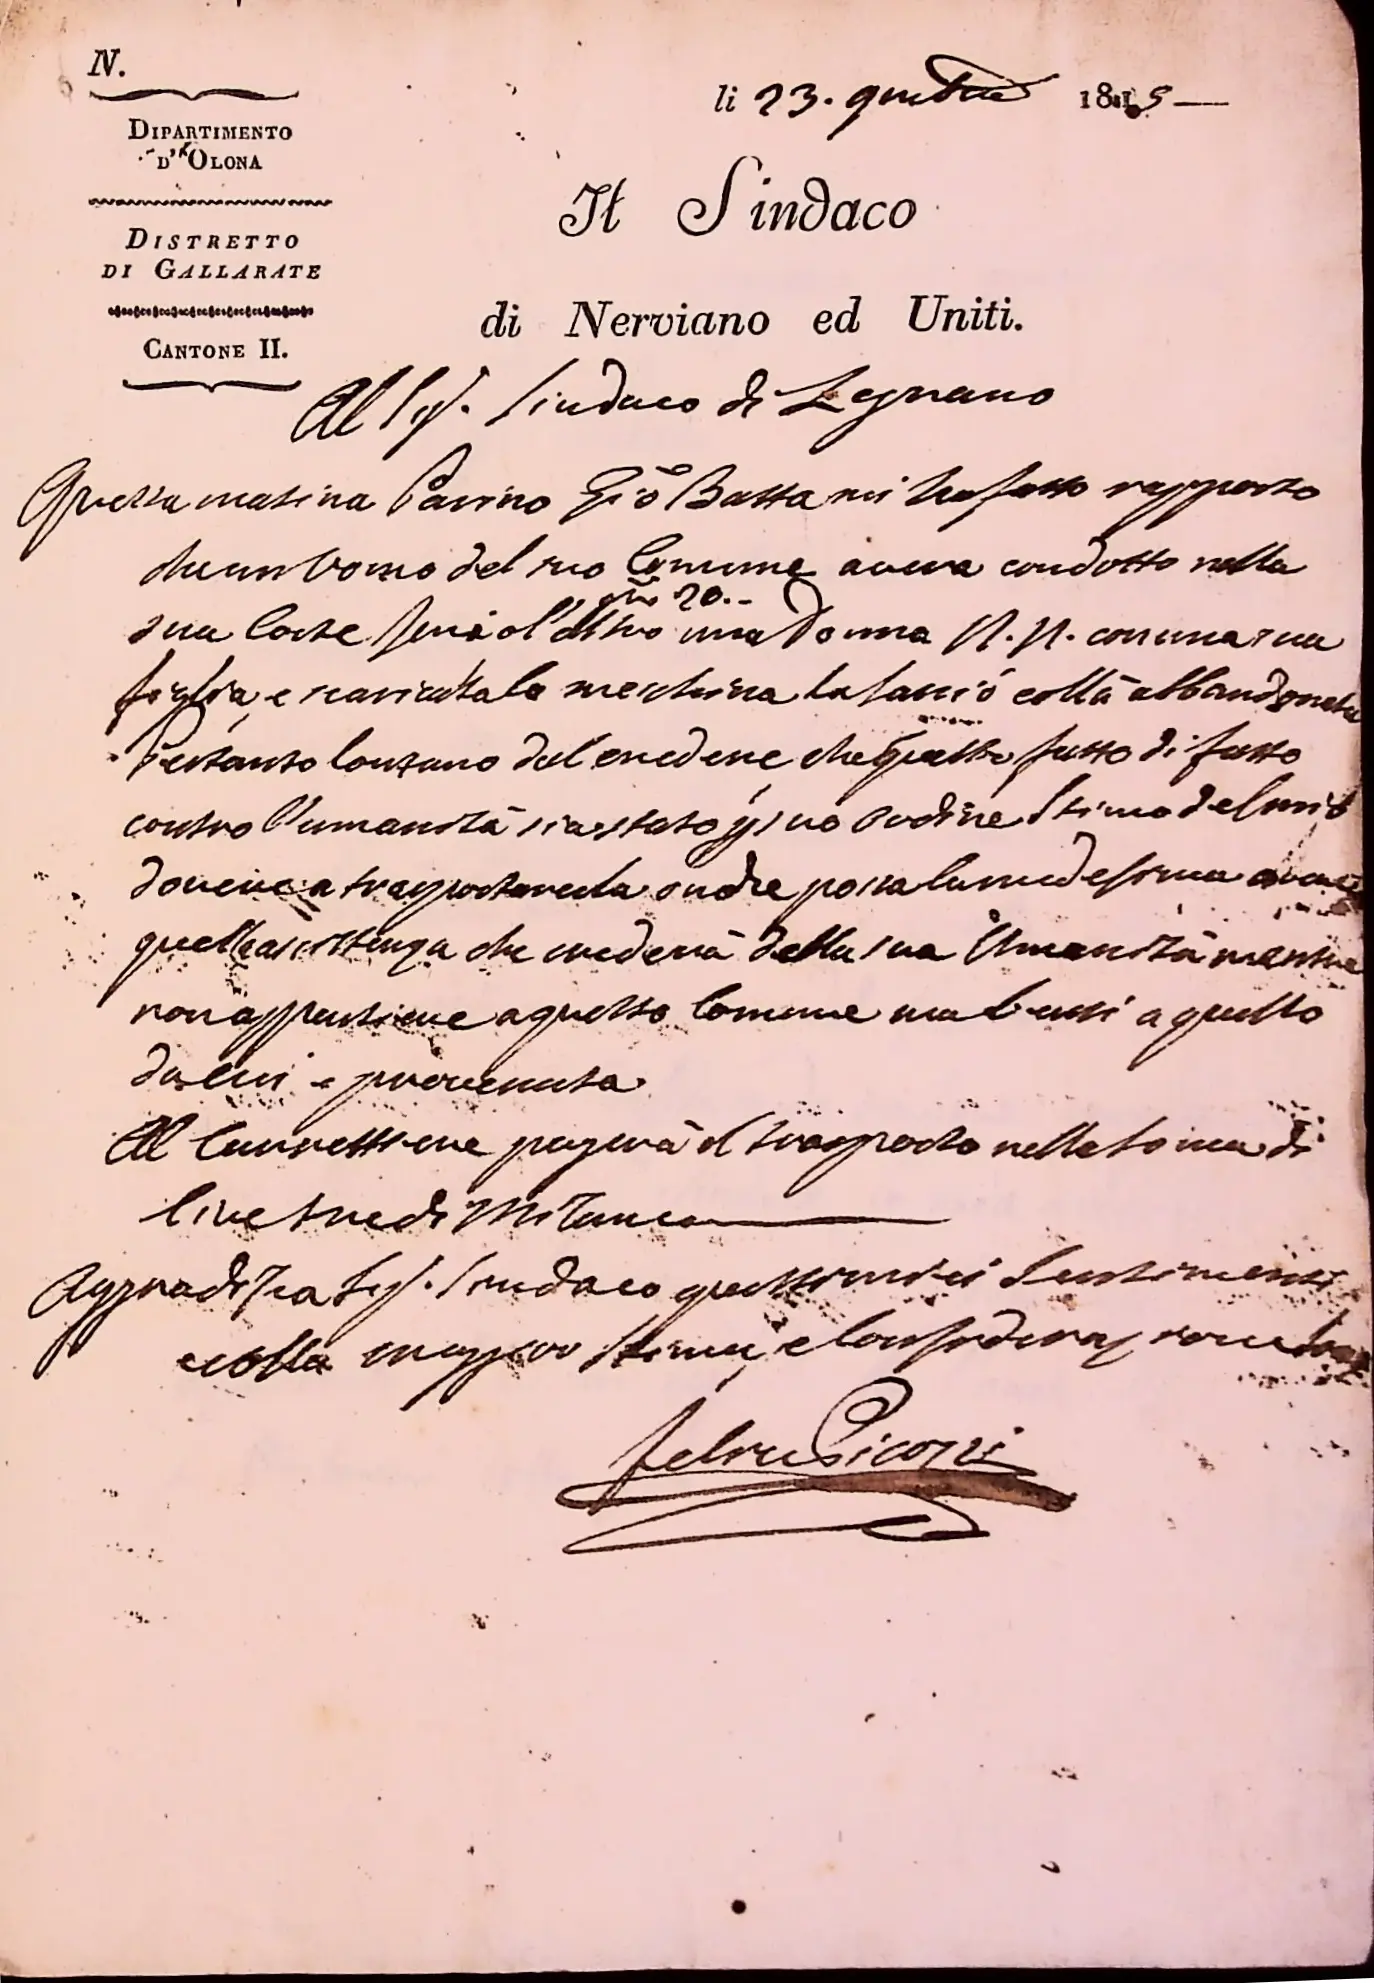 N.
DIPARTIMENTO
D'OLONA
DISTRETTO
DI GALLARATE
CANTONE II.
li 23. 1815
Il Sindaco
di Nerviano ed Uniti.
Al Sig. Sindaco di Legnano
Questa matina Parino Gio Batta mi ha fatto rapporto
che un Uomo del suo Comune aveva condotto nella
20.
sua Corte l'altro una Donna N. N. con una sua
figlia, e scaricata la meschina la lasciò collà abbandonata
Pertanto lontano dal credere che questo fatto di fatto
contro l'umanità sia stato suo ordine Stimo del mio
dovere a trasportarcela onde possa la medesima
quell'assistenza che crederà della sua Umanità mentre
non appartiene a questo Comune ma bensi a quello
da cui è provenuta
Al Carrettiere pagerà il trasporto nella soma di
lire tre di Milano
Aggradisca Sig. Sindaco questi miei Sentimenti
colla maggior Stima, e